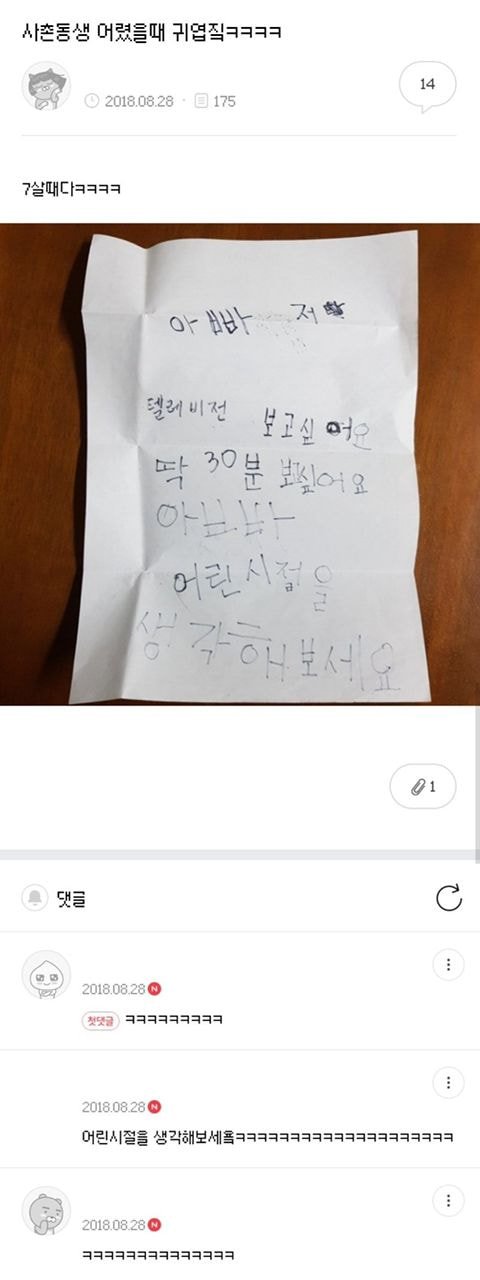 사촌동생 어렸을때 귀엽짘ㅋㅋㅋㅋ
2018.08.28 · 175
14
7살때다ㅋㅋㅋㅋ
아빠 저
텔레비전 보고싶어요
딱 30분 보싶어요
아빠
어린시점을
생각해보세요
1
댓글
2018.08.28 N
첫댓글 ㅋㅋㅋㅋㅋㅋㅋㅋㅋ
2018.08.28 N
어린시절을 생각해보세욬ㅋㅋㅋㅋㅋㅋㅋㅋㅋㅋㅋㅋㅋㅋㅋㅋㅋㅋㅋㅋ
2018.08.28 N
ㅋㅋㅋㅋㅋㅋㅋㅋㅋㅋㅋㅋㅋㅋ